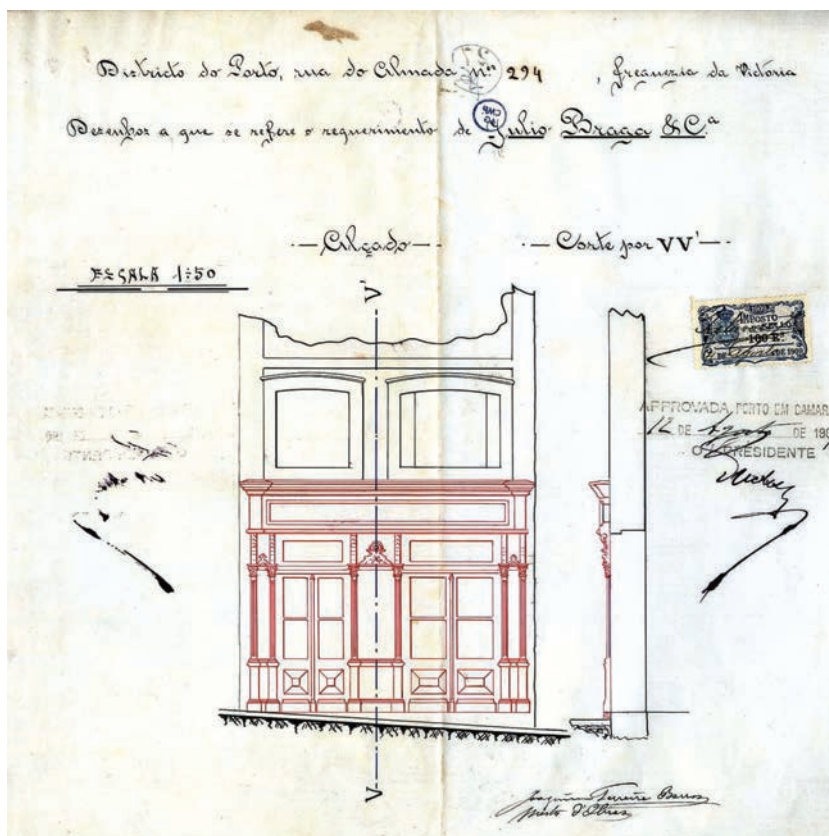 Districto do Porto, rua do Almada nº 294, freguezia da Victoria
Desenhos a que se refere o requerimento de Julio Braga & C.ª
— Alçado —
— Corte por VV' —
ESCALA 1:50
V'
IMPOSTO
100 Rs.
DE 190
APPROVADA, PORTO EM CAMARA
12 DE Agosto DE 190
O PRESIDENTE
V
Joaquim Ferreira Barros
Mestre d'Obras